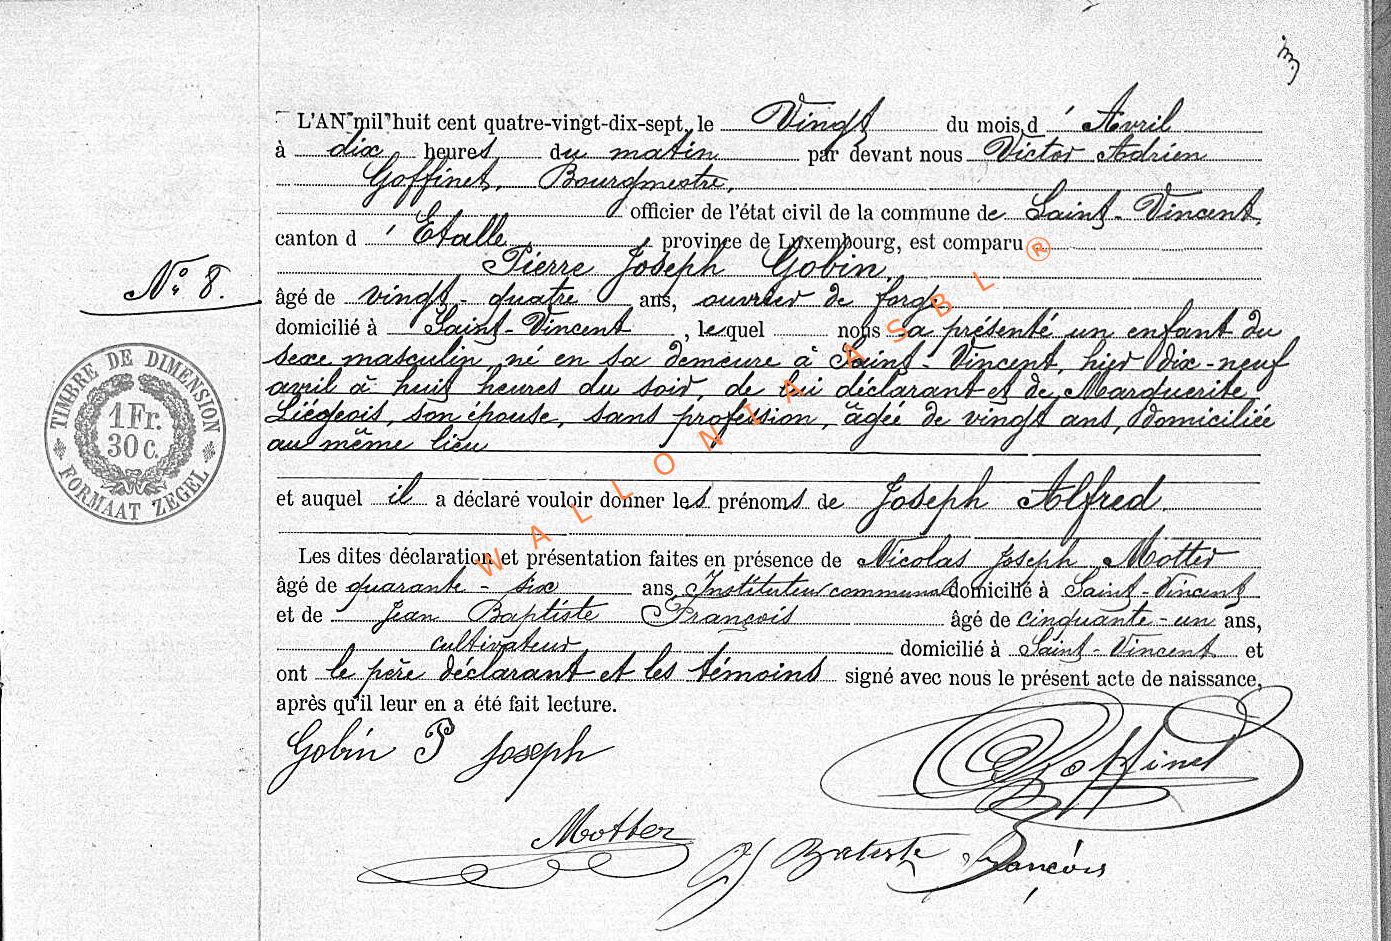 3
L'AN mil huit cent quatre-vingt-dix-sept, le Vingt du mois d'Avril
à dix heures du matin par devant nous Victor Adrien
Goffinet, Bourgmestre,
officier de l'état civil de la commune de Saint-Vincent,
canton d'Etalle, province de Luxembourg, est comparu
Pierre Joseph Gobin,
N° 8.
âgé de vingt-quatre ans, ouvrier de forge
domicilié à Saint-Vincent, lequel nous a présenté un enfant du
sexe masculin, né en sa demeure à Saint-Vincent, hier dix-neuf
avril à huit heures du soir, de lui déclarant et de Marguerite
Liégeois, son épouse, sans profession, âgée de vingt ans, domiciliée
au même lieu
et auquel il a déclaré vouloir donner les prénoms de Joseph Alfred.
Les dites déclaration et présentation faites en présence de Nicolas Joseph Motter
âgé de quarante-six ans, Instituteur communal domicilié à Saint-Vincent
et de Jean Baptiste François âgé de cinquante-un ans,
cultivateur domicilié à Saint-Vincent et
ont le père déclarant et les témoins signé avec nous le présent acte de naissance,
après qu'il leur en a été fait lecture.
Gobin P Joseph
Goffinet
Motter
J Batiste françois
TIMBRE DE DIMENSION
1 Fr.
30 C.
FORMAAT ZEGEL
WALLONIA ASBL ®